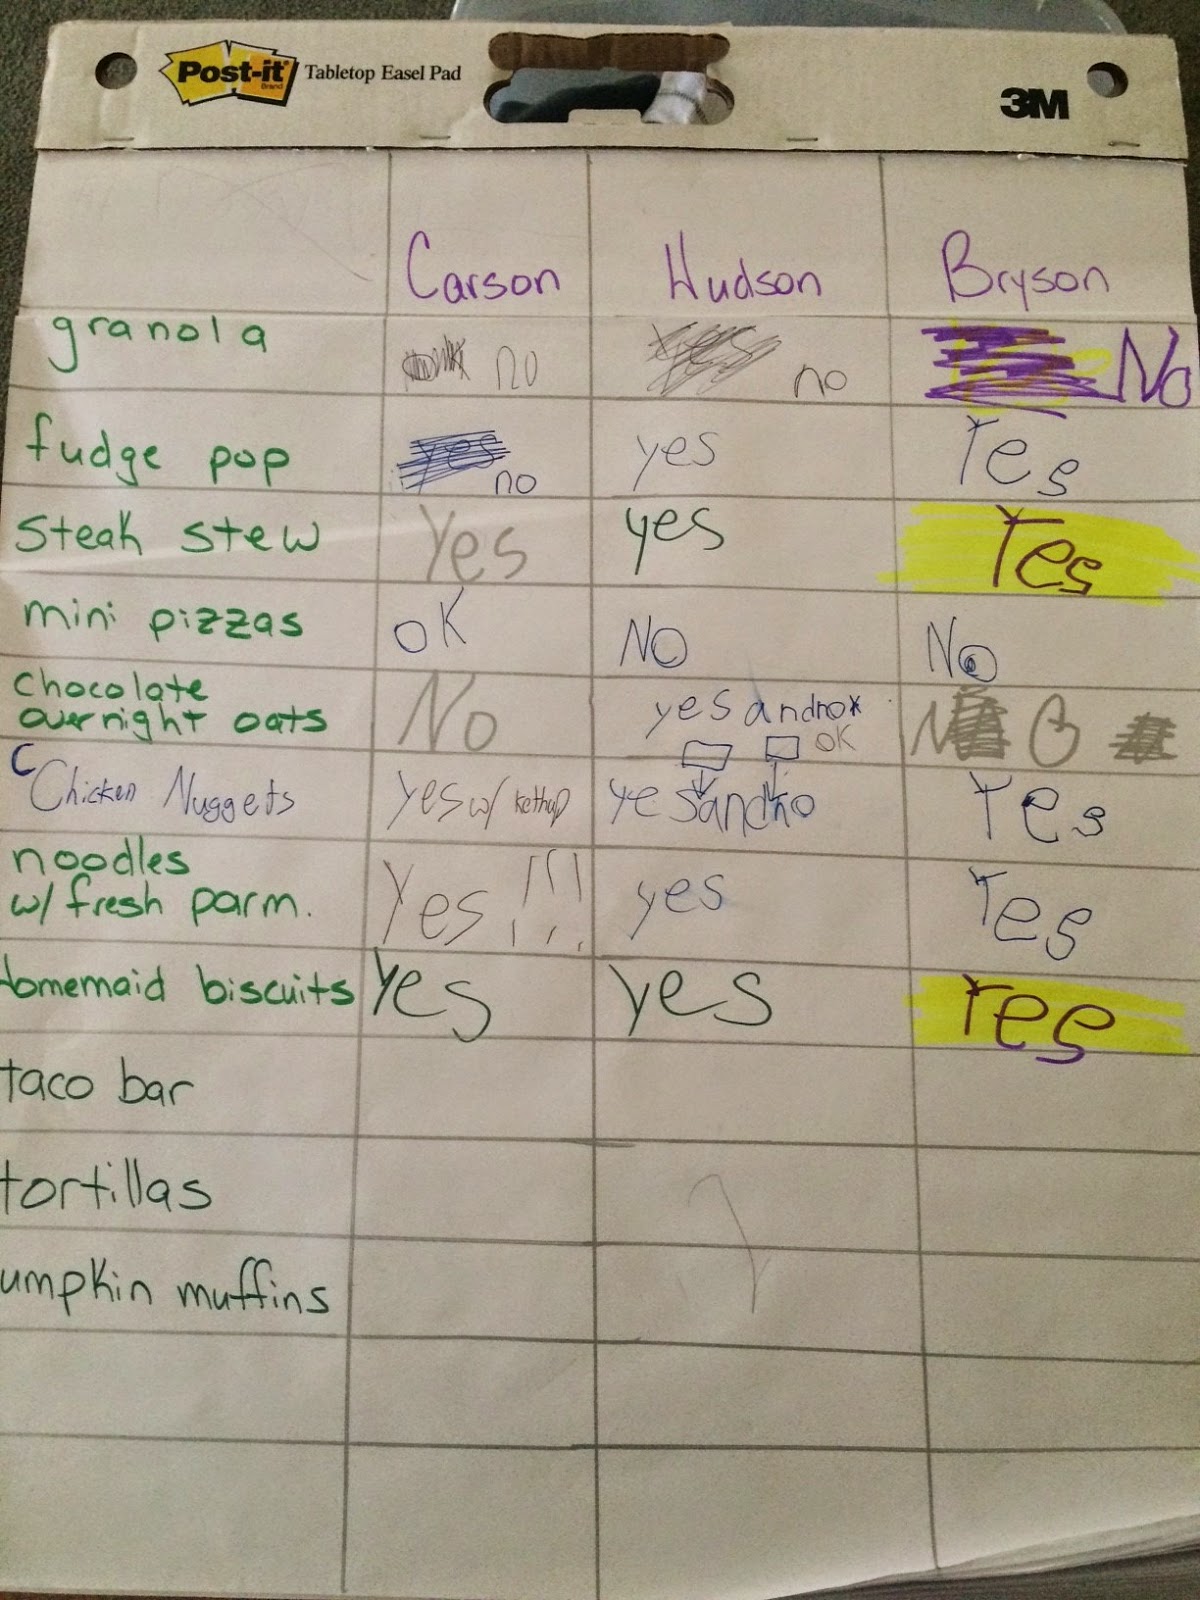 Post-it Brand Tabletop Easel Pad 3M
Carson Hudson Bryson
granola no yes no No
fudge pop yes no yes Yes
Steak stew Yes yes Yes
mini pizzas OK NO No
chocolate
overnight oats No yes and no* OK NO
Chicken Nuggets yes w/ kethup yes and no Yes
noodles
w/ fresh parm. Yes!!! yes Yes
homemaid biscuits Yes yes Yes
taco bar
tortillas
umpkin muffins